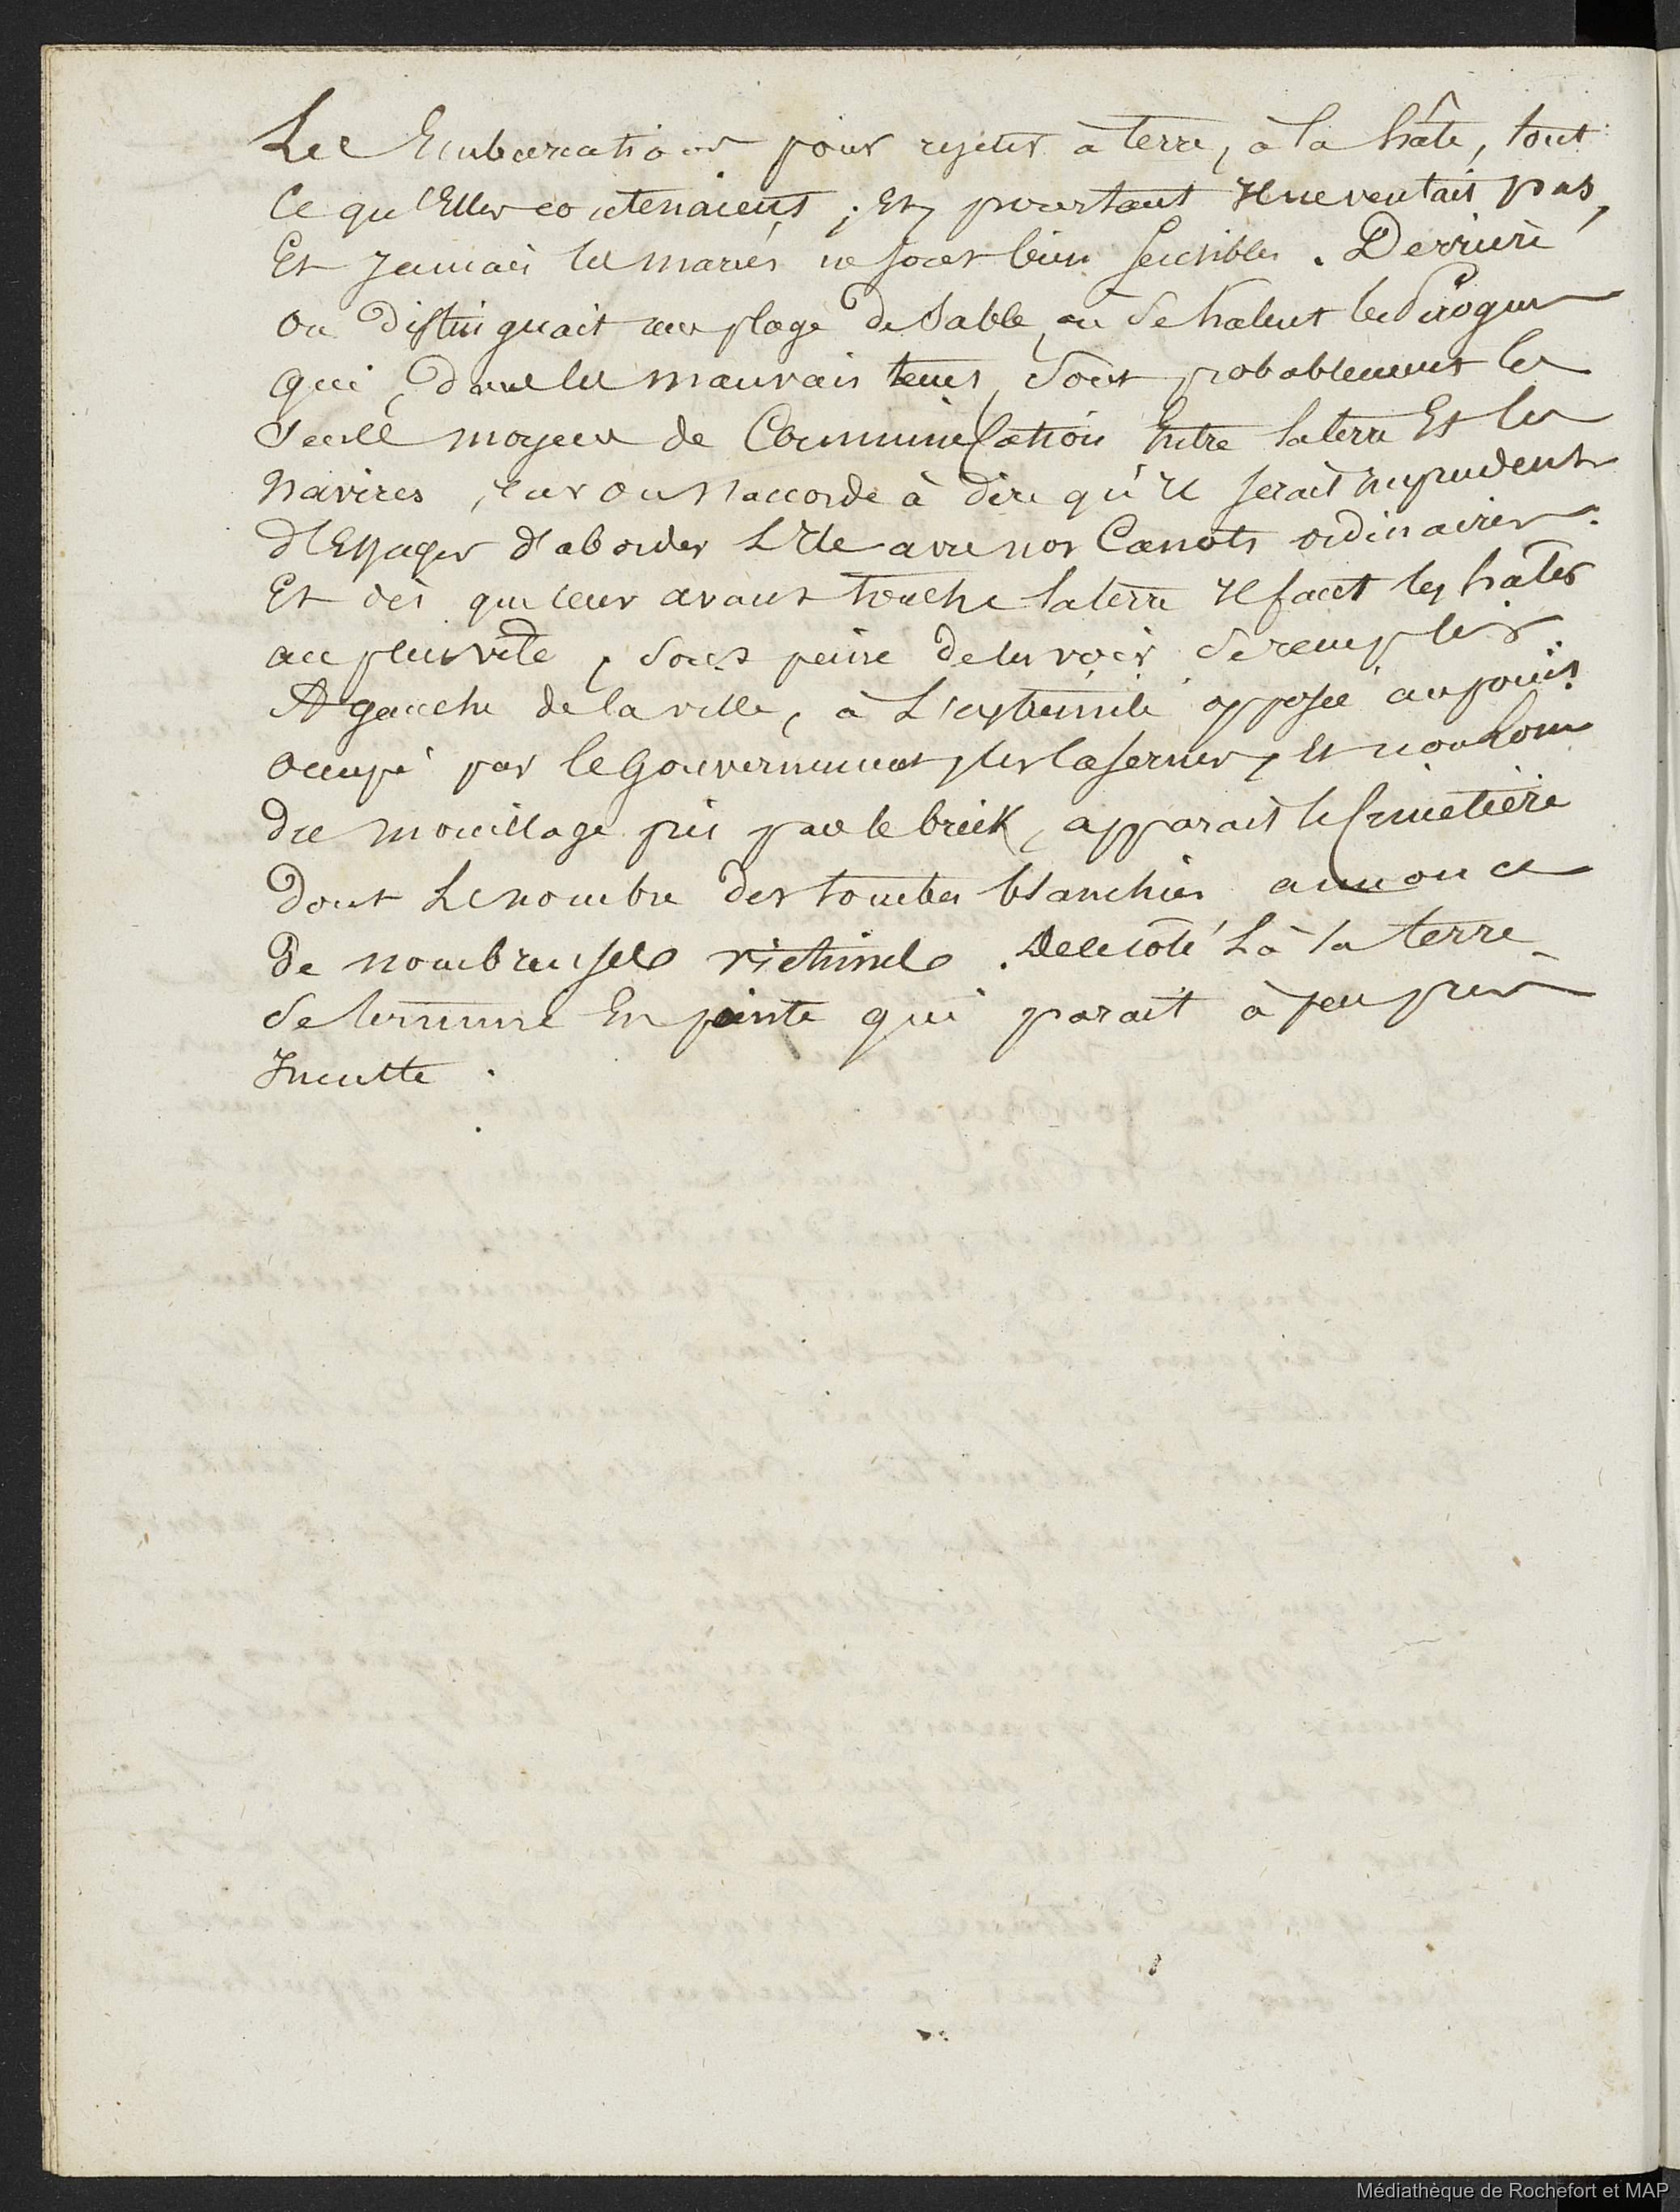 Les Embarcations pour rejeter à terre, à la hâte, tout
Ce qu'Elles contenaient ; Et, pourtant Il ne ventait pas,
Et Jamais les marées ne sont bien sensibles. Derrière
on distinguait une plage de Sable, où Se halent les Pirogues
qui, dans les mauvais tems, Sont probablement les
Seuls moyens de Communication Entre la terre Et les
navires, Car on S'accorde à dire qu'il serait imprudent
d'Essayer d'aborder L'Ile avec nos Canots ordinaires.
Et dès que leur avant touche la terre Il faut les haler
au plus vite, Sous peine de les voir Se remplir.
A gauche de la ville, à L'extrémité opposée au point
occupé par le Gouvernement, les Casernes, Et non loin
du mouillage pris par le brick, apparait le Cimetière
dont Le nombre des tombes blanchies annonce
de nombreuses victimes. De ce côté Là la terre
Se termine En pointe qui parait à peu près
Inculte.
Médiathèque de Rochefort et MAP